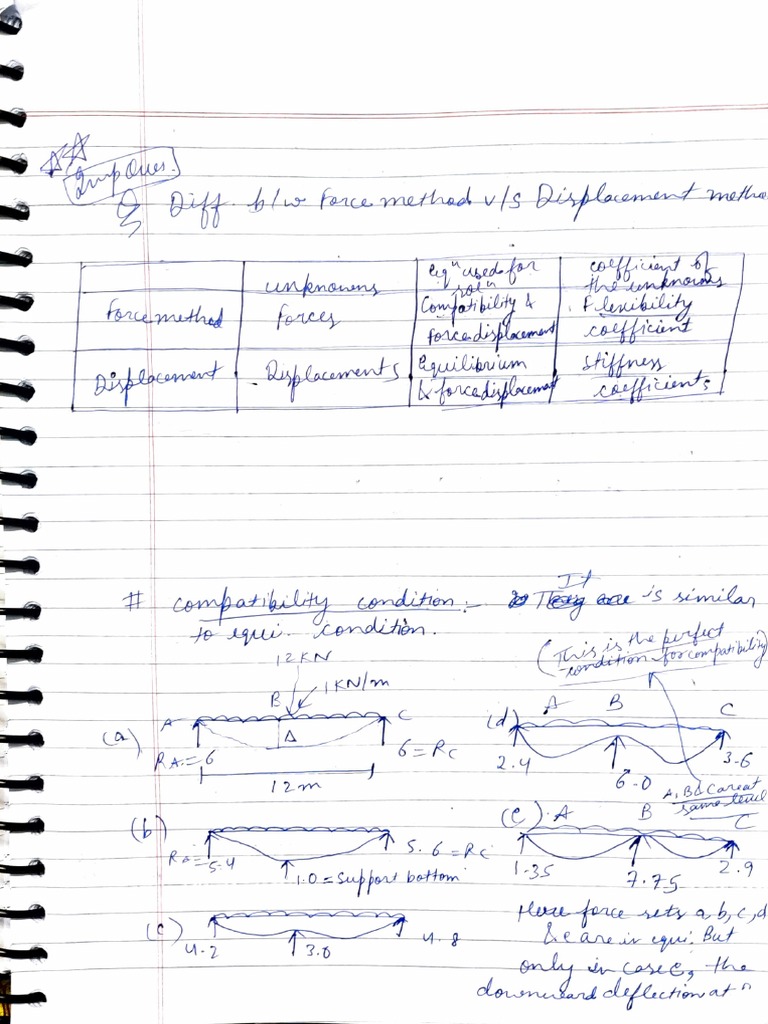 Imp Ques.
Q Diff. b/w Force method v/s Displacement metho
unknowns
eqn used for soln
coefficient of the unknowns
Force method
Forces
Compatibility & Force displacement
Flexibility coefficient
Displacement
Displacements
Equilibrium & force displacement
Stiffness coefficients
# compatibility condition :- It is similar
to equi. condition.
(This is the perfect
condition for compatibility)
12KN
1KN/m
(a) A B C
Δ
RA = 6
6 = RC
12m
(d) A B C
2.4
6.0
3.6
A, B & C are at
same level
(b)
RA = 5.4
5.6 = RC
1.0 = support bottom
(e) A B C
1.35
7.75
2.9
(c)
4.2
3.0
4.8
Here force sets a, b, c, d
& e are in equi. But
only in case e, the
downward deflection at